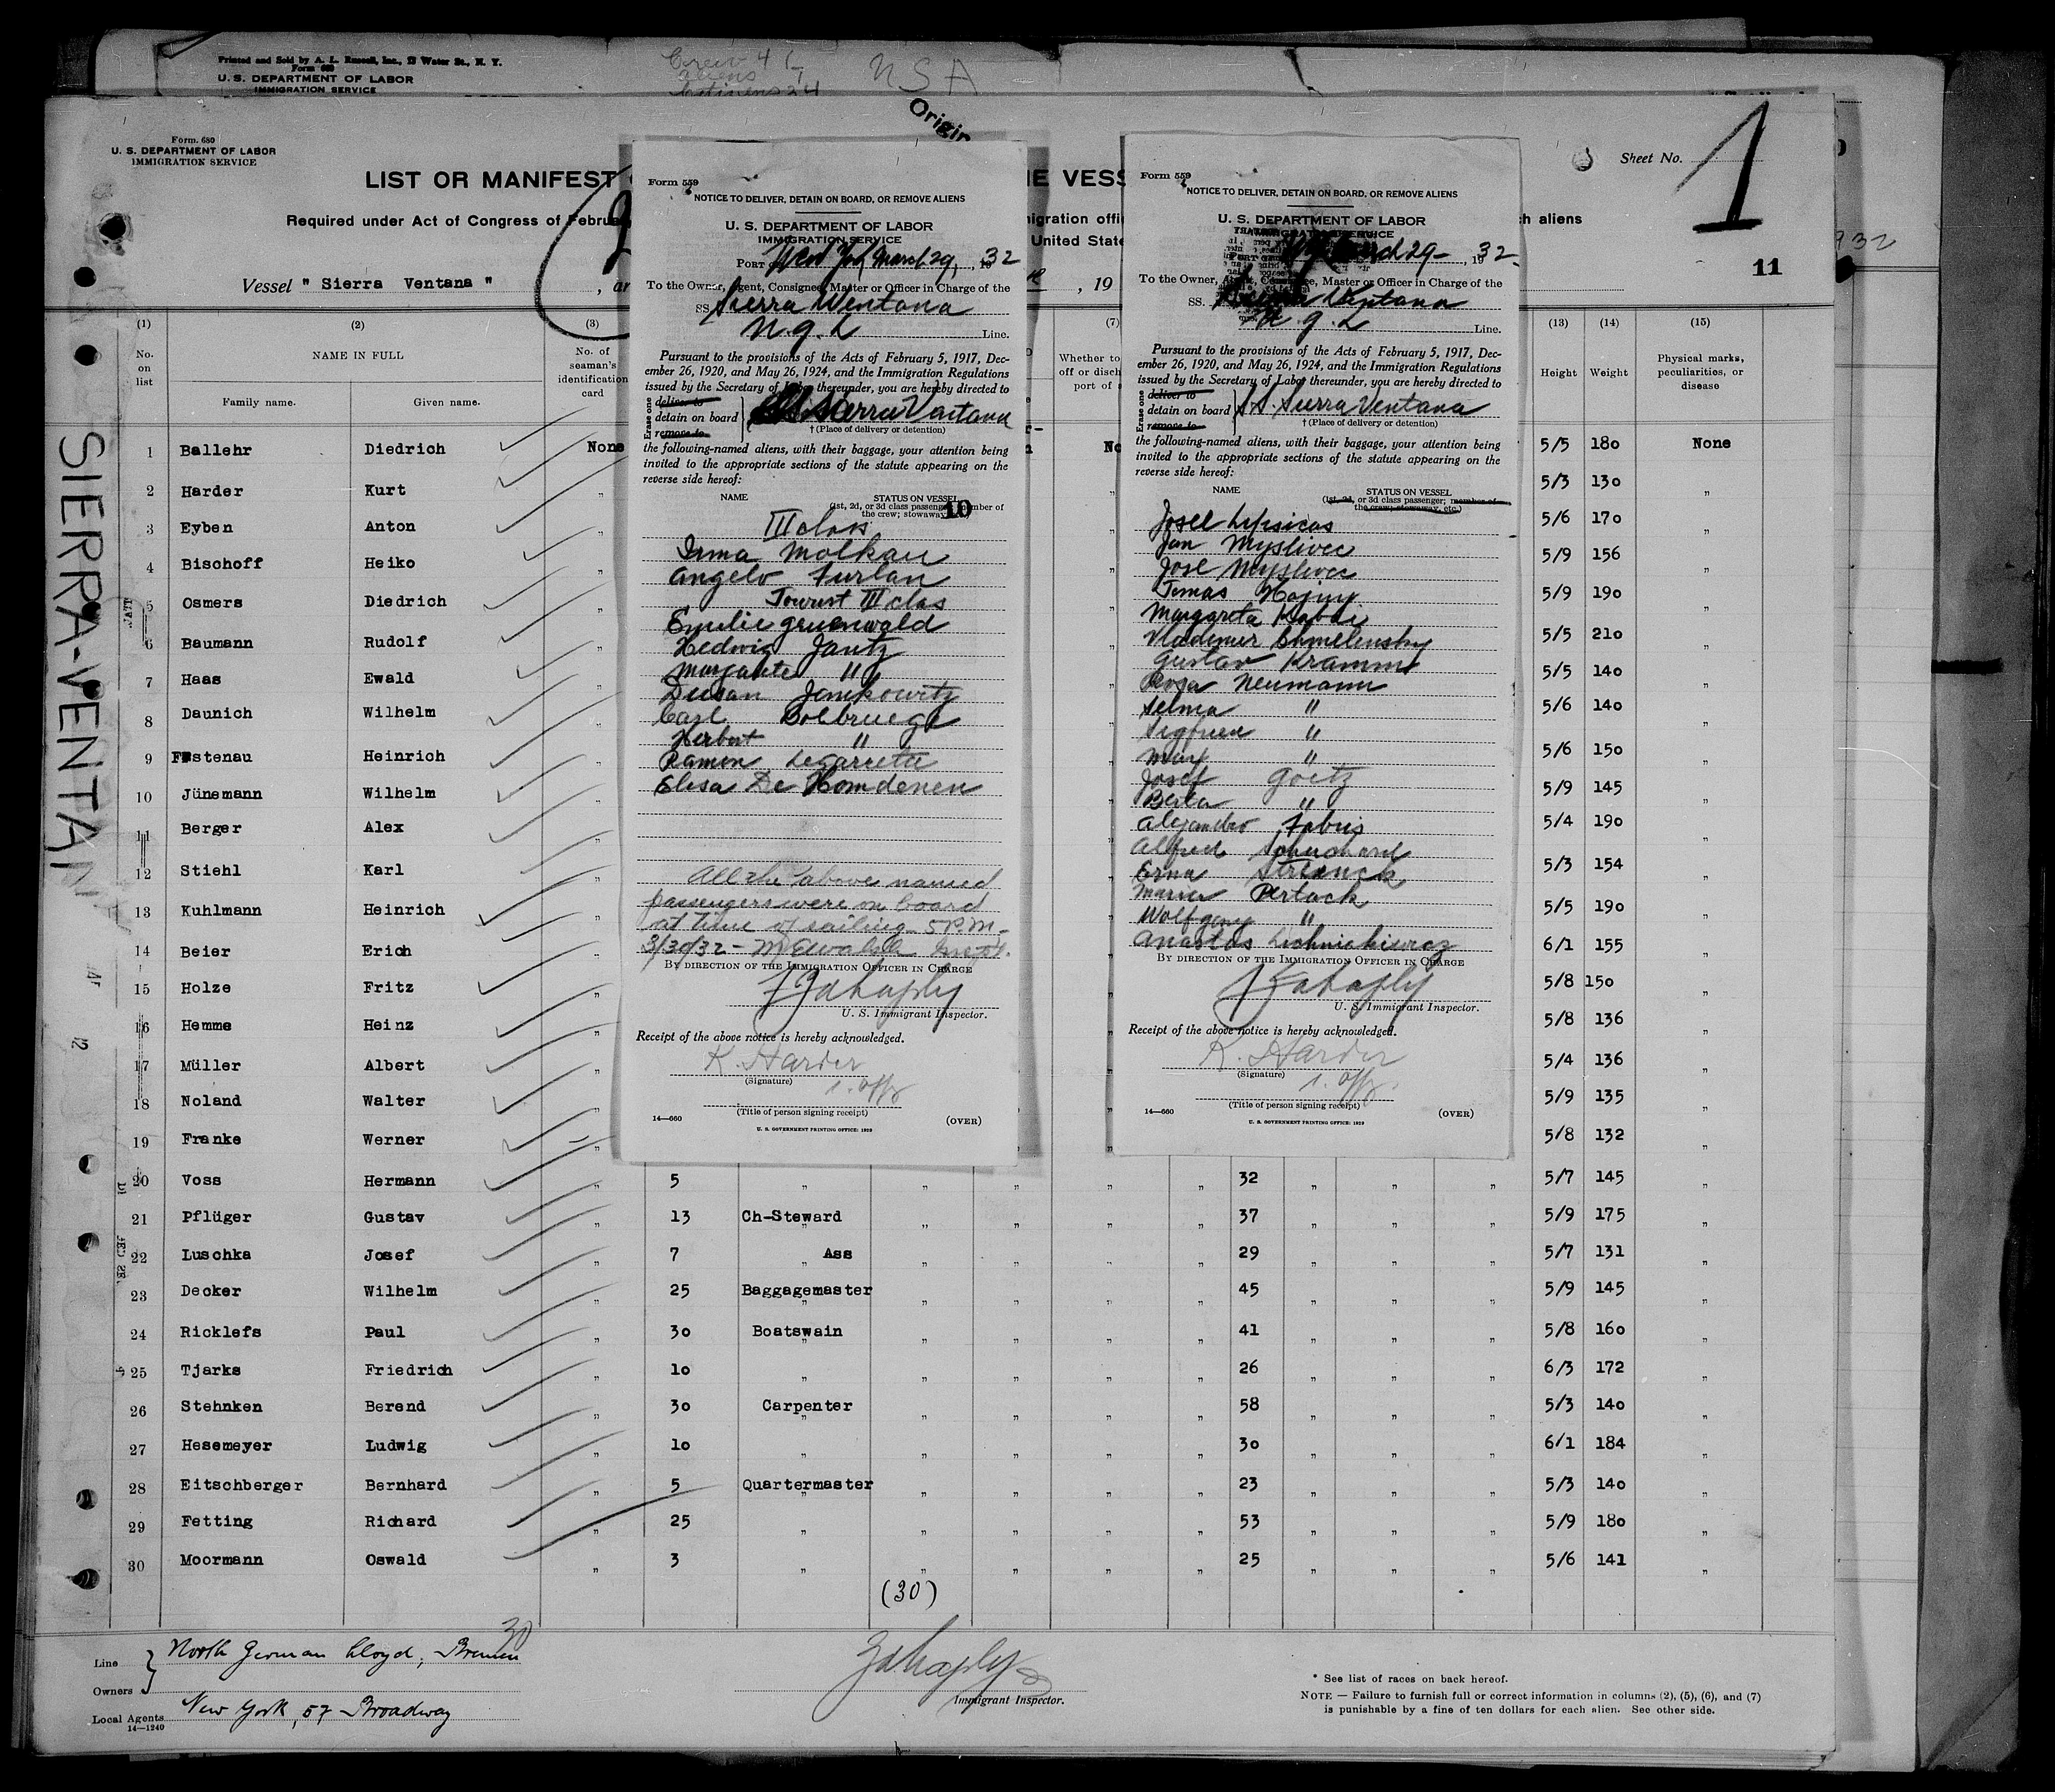 Printed and Sold by A. L. Russell, Inc., 12 Water St., N. Y.
Form 680
U. S. DEPARTMENT OF LABOR
IMMIGRATION SERVICE
Crew 4
aliens
NSA
Origin
Form. 680
U. S. DEPARTMENT OF LABOR
IMMIGRATION SERVICE
Sheet No. 1
LIST OR MANIFEST
E VESS
Required under Act of Congress of Februa
migration offic
h aliens
United State
932
11
Vessel " Sierra Ventana "
, ar
, 19
SIERRA-VENTANA
(1) (2) (3) (7) (13) (14) (15)
No. on list
NAME IN FULL
Family name. Given name.
No. of seaman's identification card
Whether to
off or disch
port of
Height Weight
Physical marks, peculiarities, or disease
1 Ballehr Diedrich None No 5/5 180 None
2 Harder Kurt " 5/3 130 "
3 Eyben Anton " 5/6 170 "
4 Bischoff Heiko " 5/9 156 "
5 Osmers Diedrich " 5/9 190 "
6 Baumann Rudolf " 5/5 210 "
7 Haas Ewald " 5/5 140 "
8 Daunich Wilhelm " 5/6 140 "
9 Fstenau Heinrich " 5/6 150 "
10 Jünemann Wilhelm " 5/9 145 "
11 Berger Alex " 5/4 190 "
12 Stiehl Karl " 5/3 154 "
13 Kuhlmann Heinrich " 5/5 190 "
14 Beier Erich " 6/1 155 "
15 Holze Fritz " 5/8 150 "
16 Hemme Heinz " 5/8 136 "
17 Müller Albert " 5/4 136 "
18 Noland Walter " 5/9 135 "
19 Franke Werner " 5/8 132 "
20 Voss Hermann " 5 " " " " " 32 " " " 5/7 145 "
21 Pflüger Gustav " 13 Ch-Steward " " " " 37 " " " 5/9 175 "
22 Luschka Josef " 7 " Ass " " " " 29 " " " 5/7 131 "
23 Decker Wilhelm " 25 Baggagemaster " " " " 45 " " " 5/9 145 "
24 Ricklefs Paul " 30 Boatswain " " " " 41 " " " 5/8 160 "
25 Tjarks Friedrich " 10 " " " " " 26 " " " 6/3 172 "
26 Stehnken Berend " 30 Carpenter " " " " 58 " " " 5/3 140 "
27 Hesemeyer Ludwig " 10 " " " " " 30 " " " 6/1 184 "
28 Eitschberger Bernhard " 5 Quartermaster " " " " 23 " " " 5/3 140 "
29 Fetting Richard " 25 " " " " " 53 " " " 5/9 180 "
30 Moormann Oswald " 3 " " " " " 25 " " " 5/6 141 "
(30)
30
Line North German Lloyd, Bremen
Owners
Local Agents New York, 57 Broadway
14—1240
Immigrant Inspector.
* See list of races on back hereof.
NOTE — Failure to furnish full or correct information in columns (2), (5), (6), and (7)
is punishable by a fine of ten dollars for each alien. See other side.
Form 559
NOTICE TO DELIVER, DETAIN ON BOARD, OR REMOVE ALIENS
U. S. DEPARTMENT OF LABOR
IMMIGRATION SERVICE
PORT OF New York March 29, 1932
To the Owner, Agent, Consignee, Master or Officer in Charge of the
SS. Sierra Ventana
N.G.L Line.
Pursuant to the provisions of the Acts of February 5, 1917, Dec-
ember 26, 1920, and May 26, 1924, and the Immigration Regulations
issued by the Secretary of Labor thereunder, you are hereby directed to
Erase one
deliver to
detain on board
remove to
SS. Sierra Ventana
† (Place of delivery or detention)
the following-named aliens, with their baggage, your attention being
invited to the appropriate sections of the statute appearing on the
reverse side hereof:
NAME STATUS ON VESSEL
(1st, 2d, or 3d class passenger; member of
the crew; stowaway
10
III class
Irma Molkau
Angelo Furlan
Tourist III clas
Emilie Gruenwald
Hedwig Jantz
Margarite "
Dusan Jankowitz
Carl Bolbruege
Herbert "
Ramon Legarreta
Elisa De Homdenen
All the above named
passengers were on board
at time of sailing 5 P.M.
3/30/32 -
BY DIRECTION OF THE IMMIGRATION OFFICER IN CHARGE
U. S. Immigrant Inspector.
Receipt of the above notice is hereby acknowledged.
K. Harder
(Signature)
1. Offz
(Title of person signing receipt)
14—660 (OVER)
U. S. GOVERNMENT PRINTING OFFICE: 1929
Form 559
NOTICE TO DELIVER, DETAIN ON BOARD, OR REMOVE ALIENS
U. S. DEPARTMENT OF LABOR
March 29 - , 1932.
To the Owner, Agent, Consignee, Master or Officer in Charge of the
SS. Sierra Ventana
N.G.L Line.
Pursuant to the provisions of the Acts of February 5, 1917, Dec-
ember 26, 1920, and May 26, 1924, and the Immigration Regulations
issued by the Secretary of Labor thereunder, you are hereby directed to
Erase one
deliver to
detain on board
remove to
SS. Sierra Ventana
† (Place of delivery or detention)
the following-named aliens, with their baggage, your attention being
invited to the appropriate sections of the statute appearing on the
reverse side hereof:
NAME STATUS ON VESSEL
(1st, 2d, or 3d class passenger; member of
the crew; stowaway, etc.)
Josel Lipsicas
Jan Myslivec
Jose Myslivec
Tomas Hajny
Margareta Kabai
Vladimir Chmelensky
Gustav Kramm
Rosa Neumann
Selma "
Sigfried "
Max "
Josef Goetz
Berta "
Alejandro Fabris
Alfred Schuchard
Erna
Maria Perlack
Wolfgang "
BY DIRECTION OF THE IMMIGRATION OFFICER IN CHARGE
U. S. Immigrant Inspector.
Receipt of the above notice is hereby acknowledged.
K. Harder
(Signature)
1. Offz.
(Title of person signing receipt)
14—660 (OVER)
U. S. GOVERNMENT PRINTING OFFICE: 1929